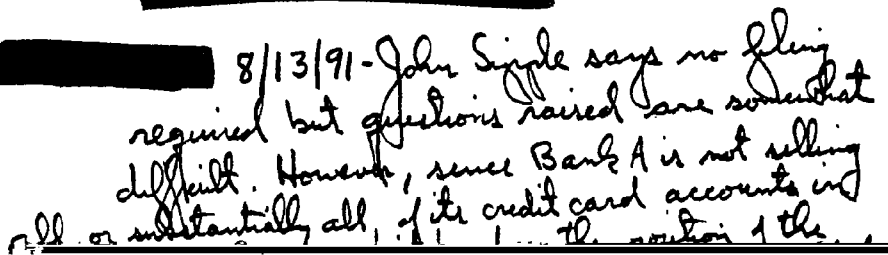 8/13/91 - John Sipple says no filing
required but questions raised are somewhat
difficult. However, since Bank A is not selling
all, or substantially all, of its credit card accounts in
the position of the